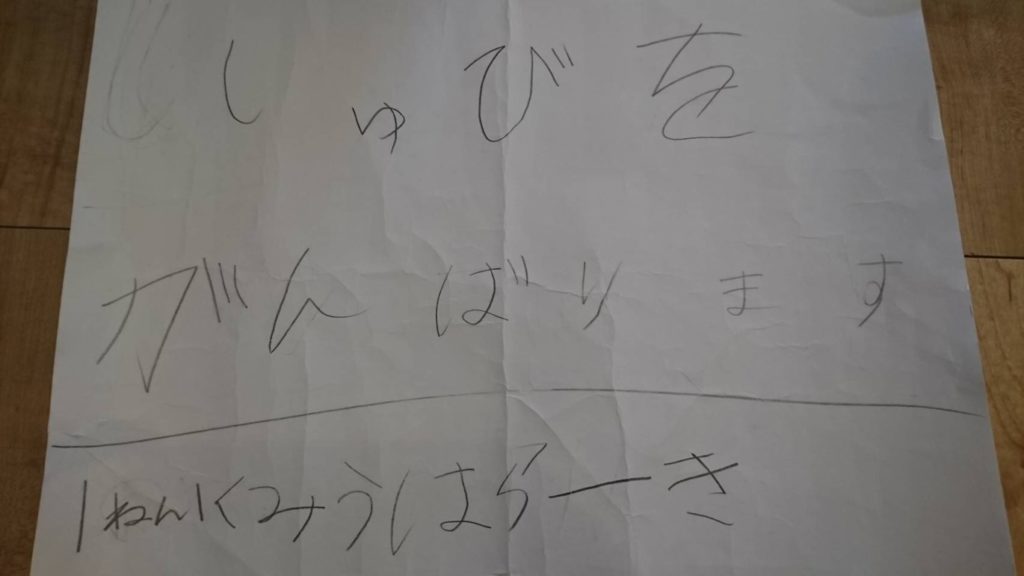 しゅびを
がんばります
1ねん1くみうしはらーき